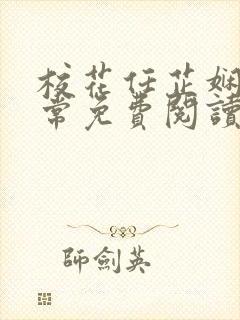 校花任芷嫻
常免費閱讀
師劍英